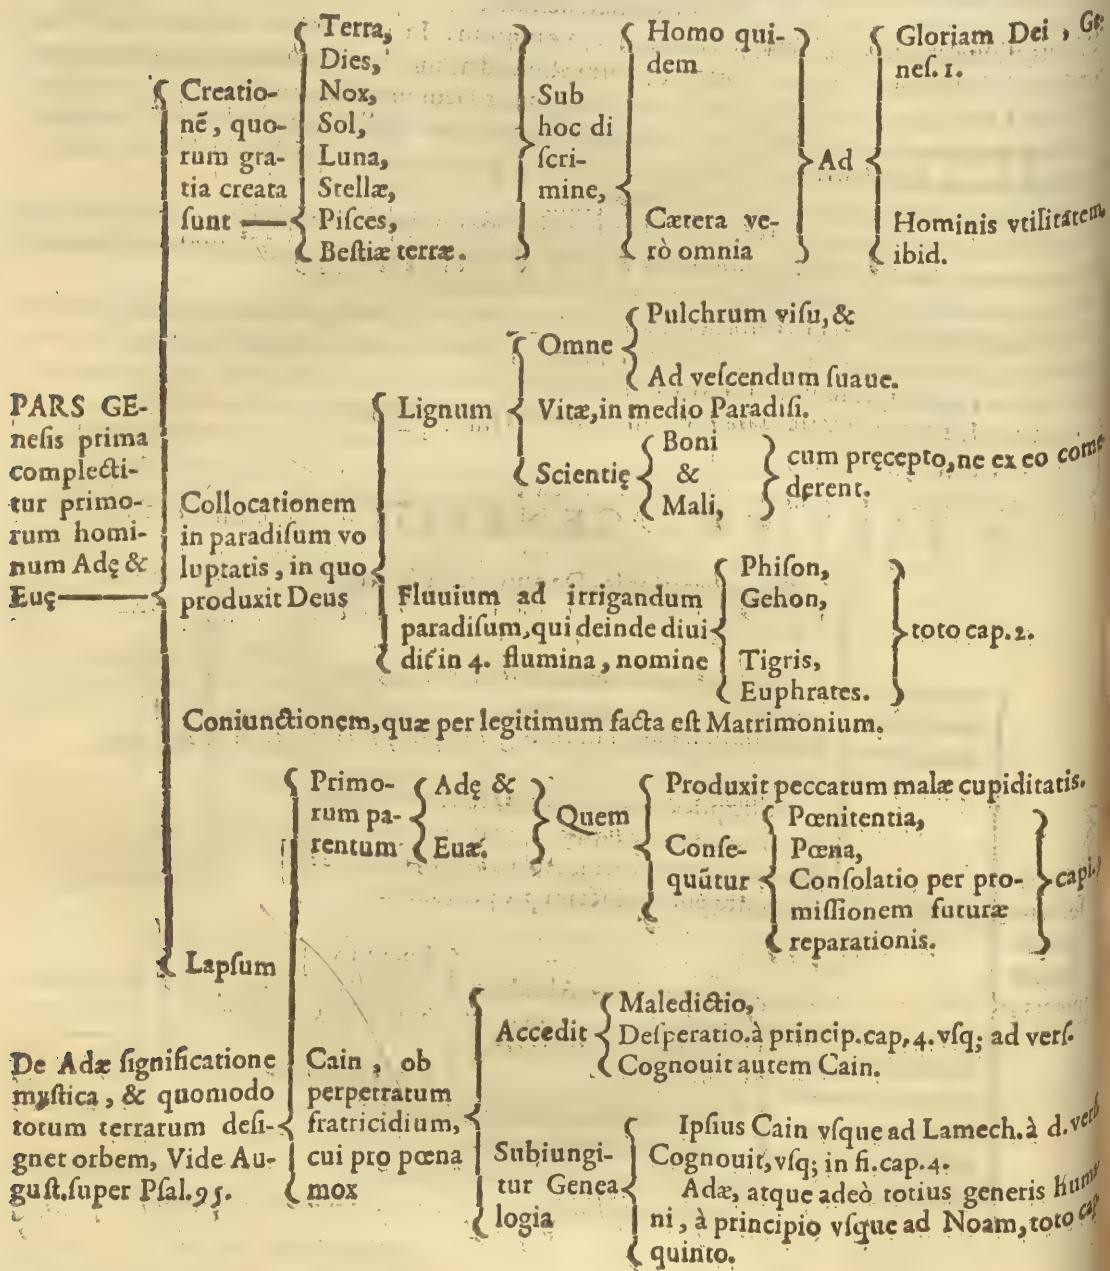 PARS GE-
nesis prima
complecti-
tur primo-
rum homi-
num Adę &
Euę
Creatio-
nē, quo-
rum gra-
tia creata
ſunt
Terra,
Dies,
Nox,
Sol,
Luna,
Stellæ,
Piſces,
Beſtiæ terræ.
Sub
hoc di
ſcri-
mine,
Homo qui-
dem
Cætera ve-
rò omnia
Ad
Gloriam Dei, Ge
neſ. 1.
Hominis vtilitatem,
ibid.
Collocationem
in paradiſum vo
luptatis, in quo
produxit Deus
Lignum
Omne
Pulchrum viſu, &
Ad veſcendum ſuaue.
Vitæ, in medio Paradiſi.
Scientię
Boni
&
Mali,
cum pręcepto, ne ex eo come
derent.
Fluuium ad irrigandum
paradiſum, qui deinde diui
dit in 4. flumina, nomine
Phiſon,
Gehon,
Tigris,
Euphrates.
toto cap. 2.
Coniunctionem, quæ per legitimum facta eſt Matrimonium.
Lapſum
Primo-
rum pa-
rentum
Adę &
Euæ.
Quem
Produxit peccatum malæ cupiditatis.
Conſe-
quūtur
Pœnitentia,
Pœna,
Conſolatio per pro-
miſſionem futuræ
reparationis.
capi.
Cain, ob
perpetratum
fratricidium,
cui pro pœna
mox
Accedit
Maledictio,
Deſperatio. à princip. cap. 4. vſq; ad verſ.
Cognouit autem Cain.
Subiungi-
tur Genea
logia
Ipſius Cain vſque ad Lamech. à d. verb
Cognouit, vſq; in fi. cap. 4.
Adæ, atque adeò totius generis huma
ni, à principio vſque ad Noam, toto cap
quinto.
De Adæ ſignificatione
myſtica, & quomodo
totum terrarum deſi-
gnet orbem, Vide Au-
guſt. ſuper Pſal. 95.